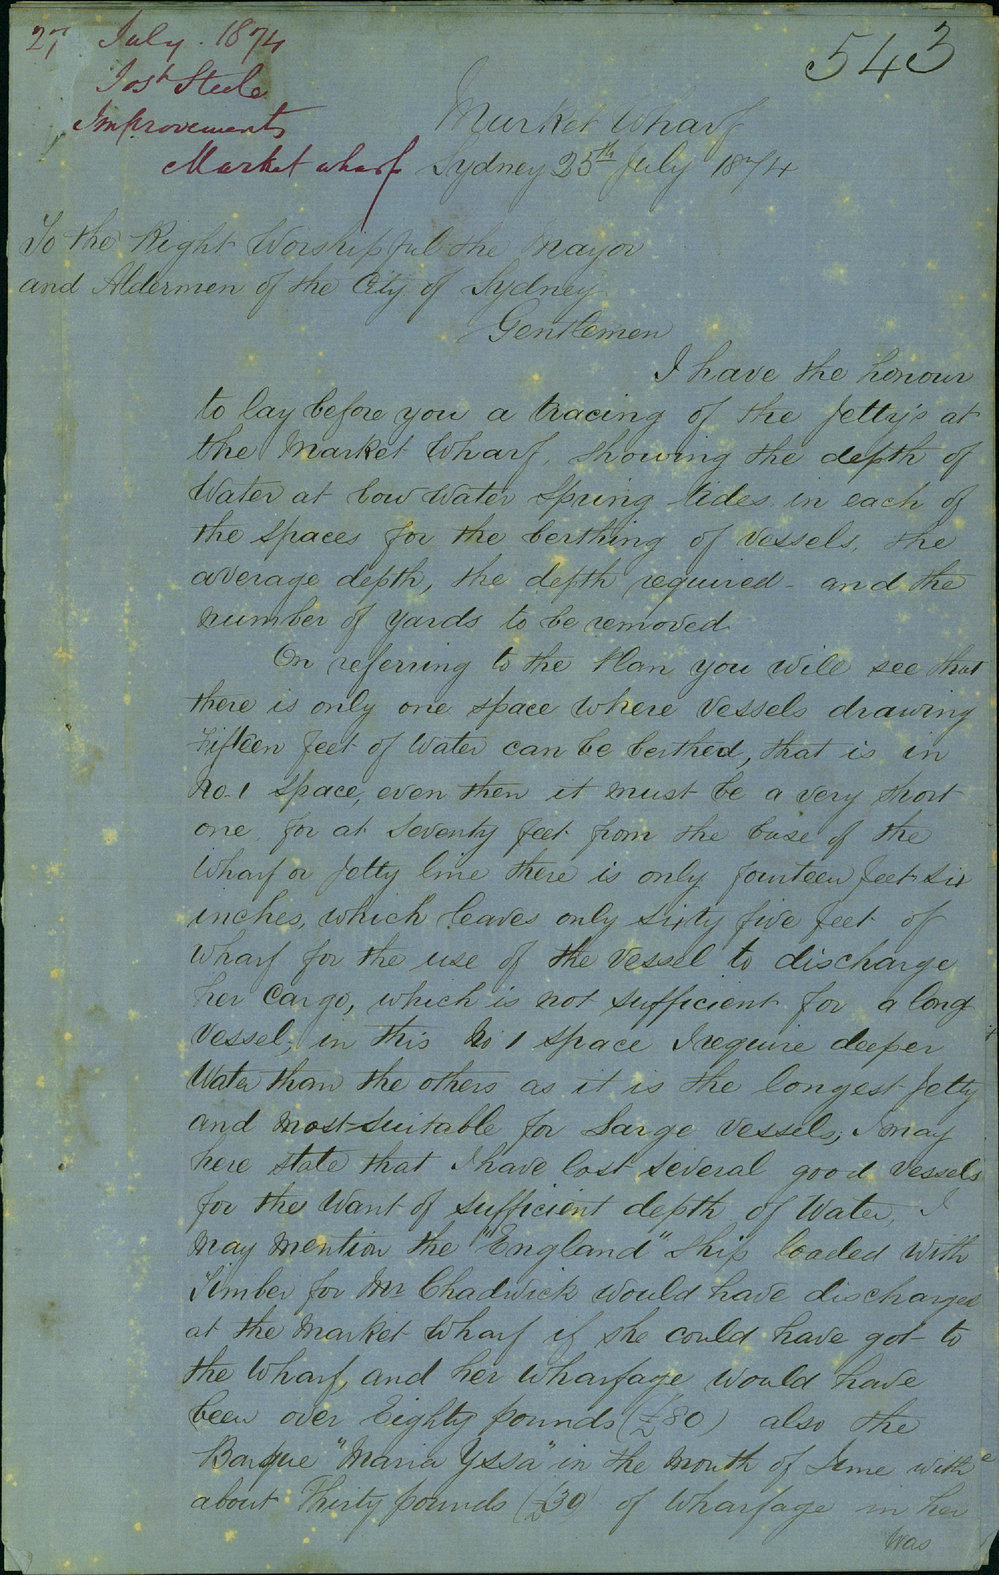 27 July. 1874
Josh Steele
Improvements
Market wharf
543
Market Wharf
Sydney 25th July 1874
To the Right Worshipful the Mayor
and Aldermen of the City of Sydney
Gentlemen
I have the honour
to lay before you a tracing of the Jetty's at
the Market Wharf, showing the depth of
Water at low water Spring tides in each of
the spaces for the berthing of Vessels, the
average depth, the depth required - and the
number of yards to be removed.
On referring to the Plan you will see that
there is only one space where Vessels drawing
Fifteen feet of Water can be berthed, that is in
No. 1 Space, even then it must be a very short
one for at Seventy feet from the base of the
Wharf or Jetty line there is only fourteen feet six
inches, which leaves only sixty five feet of
Wharf for the use of the Vessel to discharge
her Cargo, which is not sufficient for a long
Vessel; in this No 1 space I require deeper
Water than the others as it is the longest Jetty
and most suitable for Large Vessels; I may
here state that I have lost several good Vessels
for the Want of sufficient depth of Water, I
may mention the "England" Ship loaded with
Timber for Mr Chadwick would have discharged
at the Market Wharf if she could have got to
the Wharf, and her Wharfage Would have
been over Eighty pounds (£80) also the
Barque "Maria Yssa" in the Month of June with
about Thirty pounds (£30) of Wharfage in her
Was